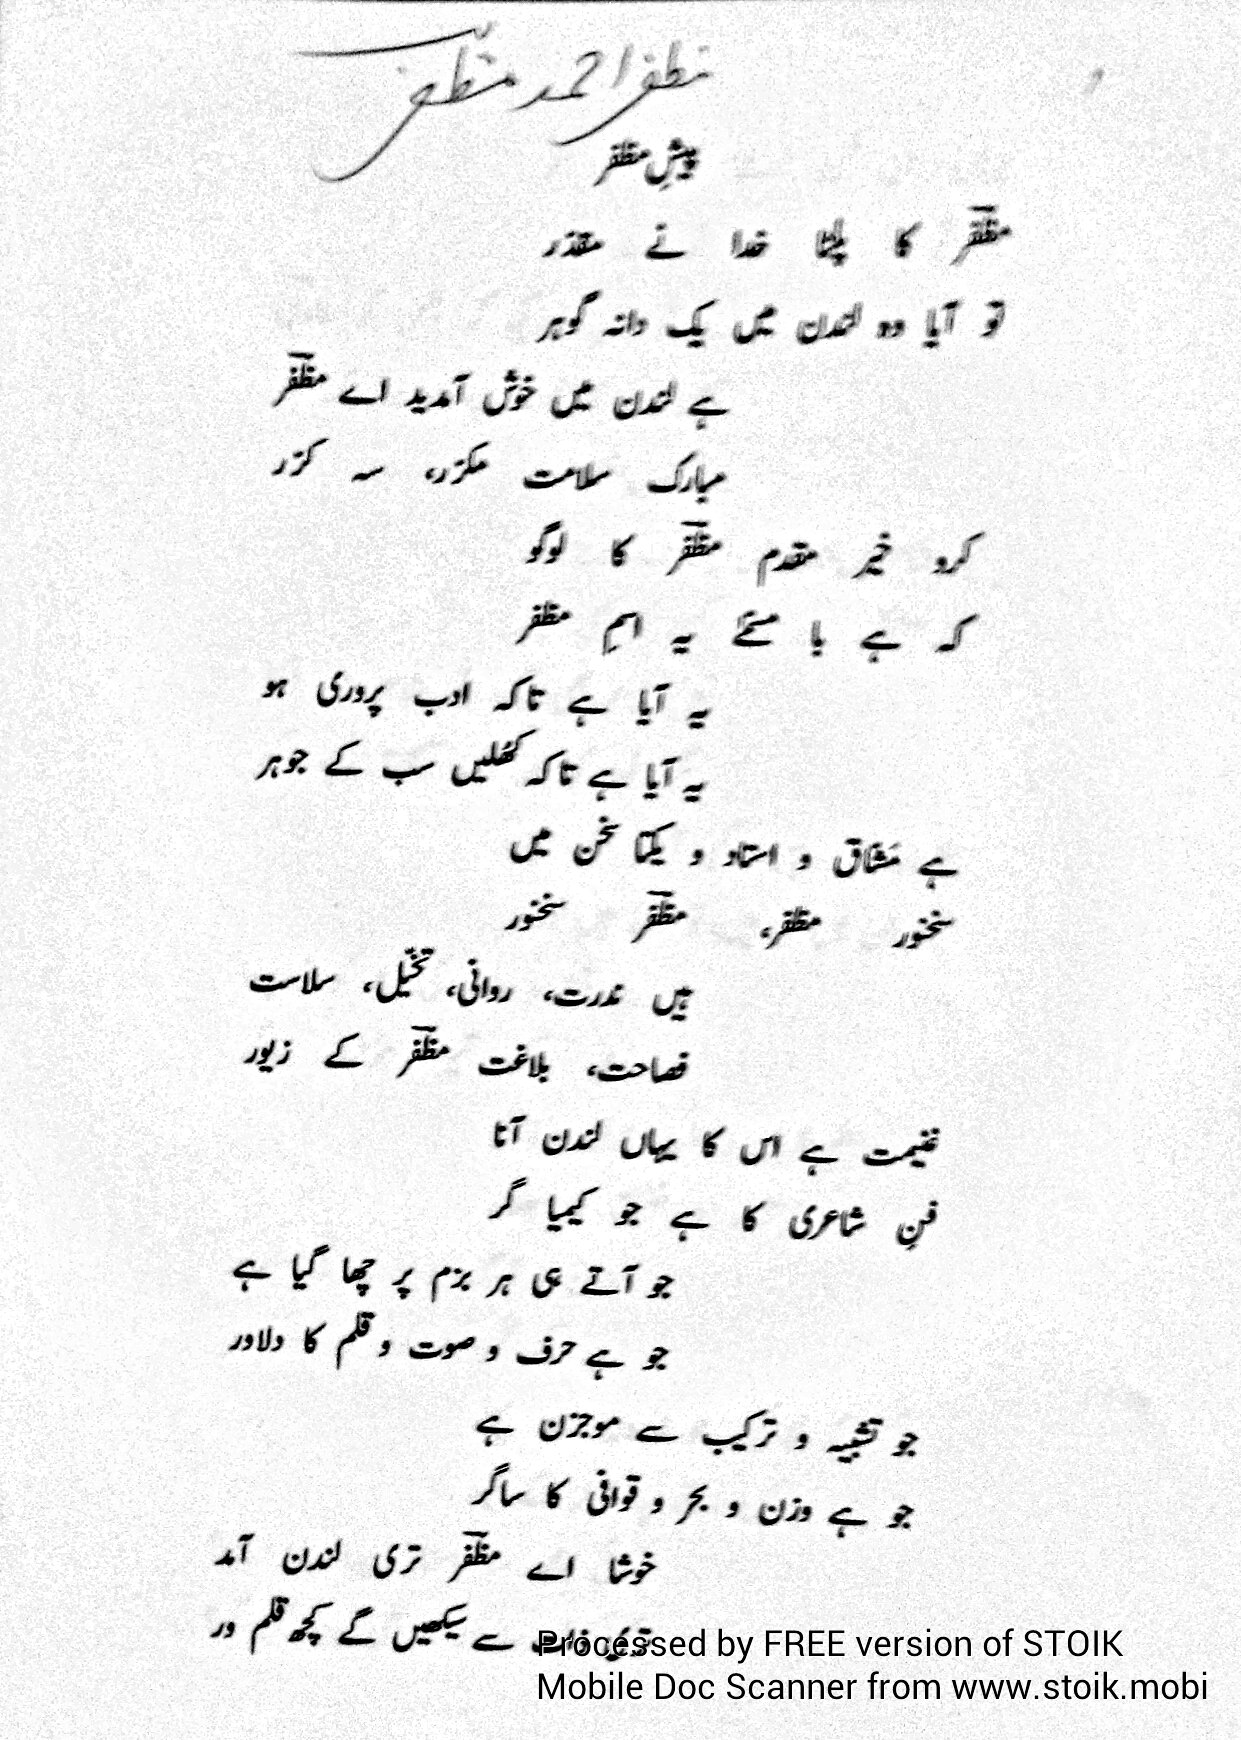 مظفر احمد مظفر
پیشِ مظفر
مظفرؔ کا پلٹا خدا نے مقدّر
تو آیا وہ لندن میں یک دانہ گوہر
ہے لندن میں خوش آمدید اے مظفرؔ
مبارک سلامت مکرّر، سہ کرّر
کرو خیر مقدم مظفرؔ کا لوگو
کہ ہے با مسمّٰے یہ اسمِ مظفر
یہ آیا ہے تاکہ ادب پروری ہو
یہ آیا ہے تاکہ کھُلیں سب کے جوہر
ہے مَشّاق و استاد و یکتا سخن میں
سخنور مظفر، مظفرؔ سخنور
ہیں ندرت، روانی، تخیّل، سلاست
فصاحت، بلاغت مظفرؔ کے زیور
غنیمت ہے اس کا یہاں لندن آنا
فنِ شاعری کا ہے جو کیمیا گر
جو آتے ہی ہر بزم پر چھا گیا ہے
جو ہے حرف و صوت و قلم کا دلاور
جو تشبیہ و ترکیب سے موجزن ہے
جو ہے وزن و بحر و قوافی کا ساگر
خوشا اے مظفرؔ تری لندن آمد
سے سیکھیں گے کچھ قلم ور
Processed by FREE version of STOIK
Mobile Doc Scanner from www.stoik.mobi